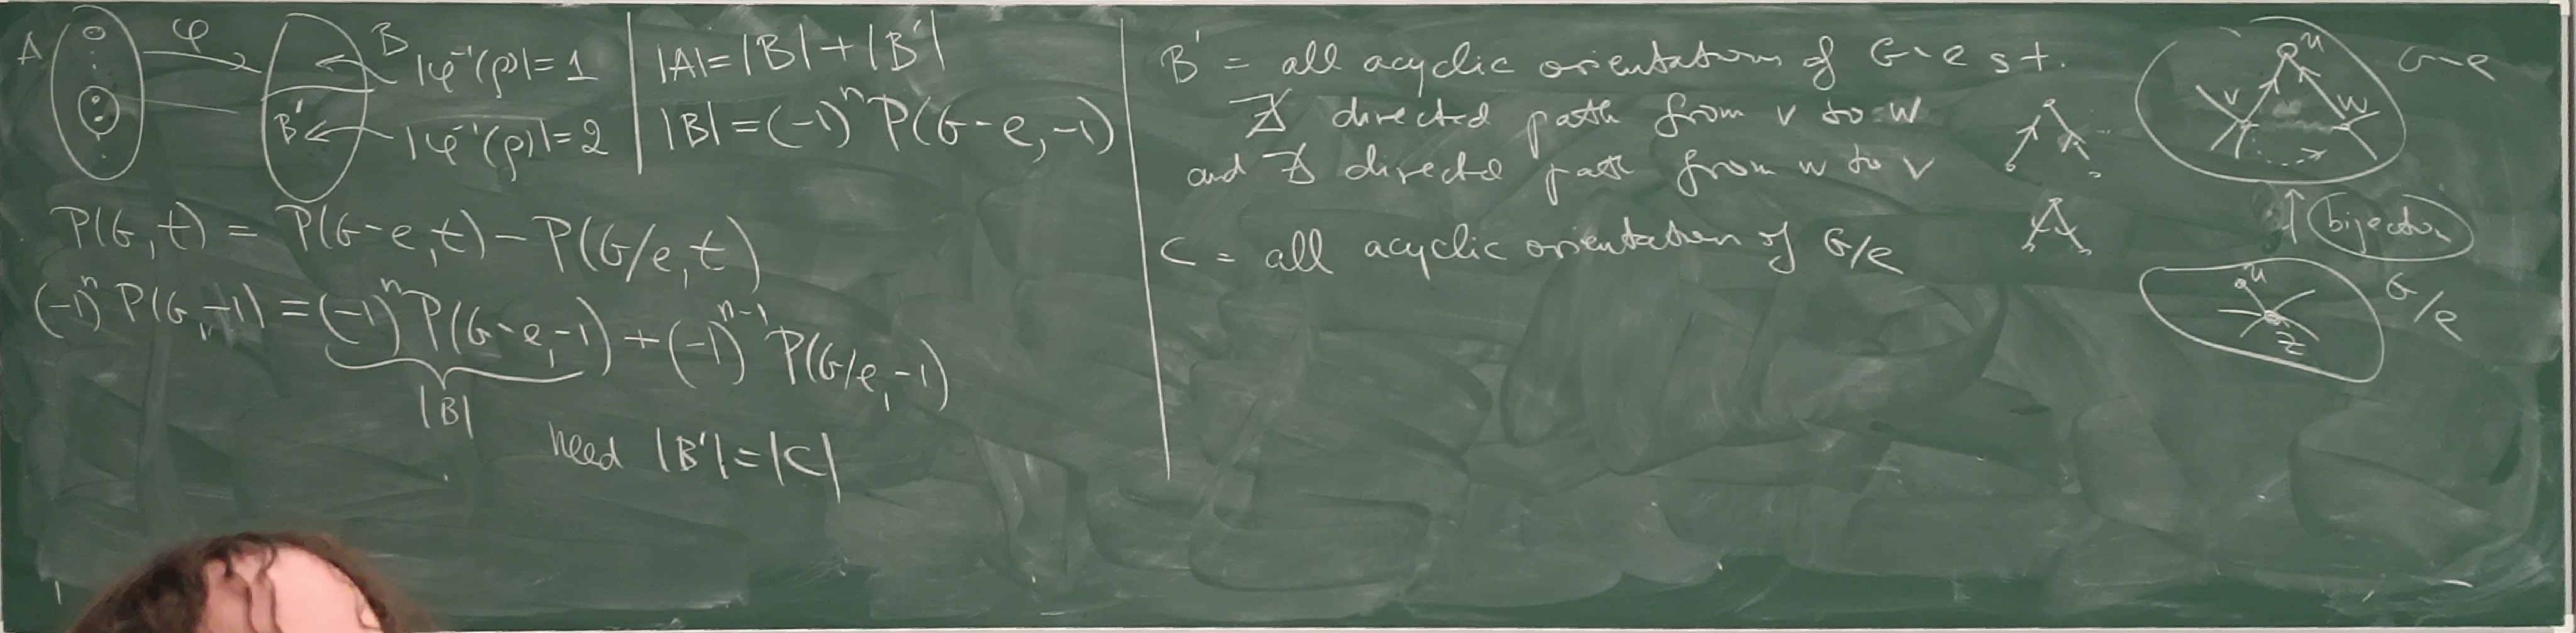 A φ B |φ⁻¹(ρ)|=1
B' |φ⁻¹(ρ)|=2
|A|=|B|+|B'|
|B|=(-1)ⁿP(G-e,-1)
P(G,t) = P(G-e,t)-P(G/e,t)
(-1)ⁿP(G,-1) = (-1)ⁿP(G-e,-1)+(-1)ⁿ⁻¹P(G/e,-1)
|B|
need |B'|=|C|
B' = all acyclic orientations of G-e s.t.
∄ directed path from v to w
and ∄ directed path from w to v
C = all acyclic orientation of G/e
u G-e
v w
bijection
u G/e
z